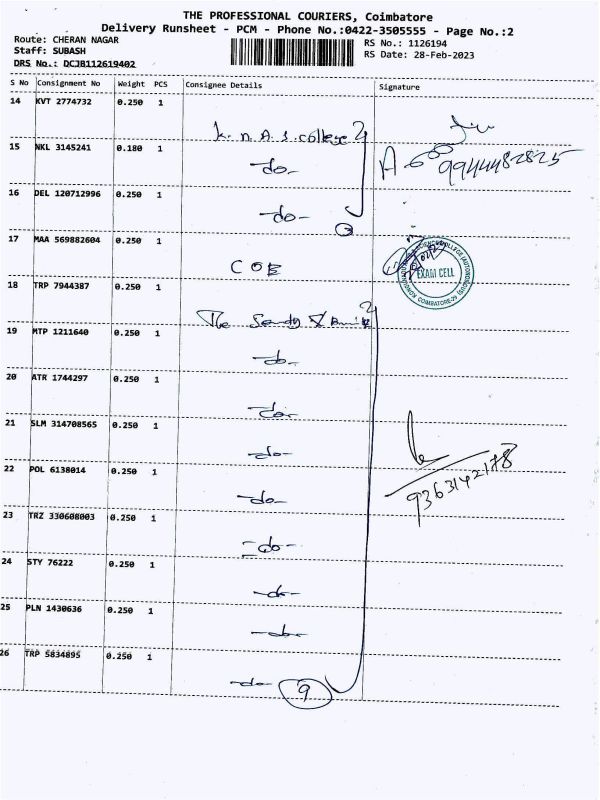 THE PROFESSIONAL COURIERS, Coimbatore
Delivery Runsheet - PCM - Phone No.:0422-3505555 - Page No.:2
Route: CHERAN NAGAR
Staff: SUBASH
DRS No.: DCJB112619402
RS No.: 1126194
RS Date: 28-Feb-2023
S No Consignment No Weight PCS Consignee Details Signature
14 KVT 2774732 0.250 1
K. N. A. S. College
15 NKL 3145241 0.180 1
-do-
9944482825
16 DEL 120712996 0.250 1
-do-
3
17 MAA 569882604 0.250 1
COE
EXAM CELL
18 TRP 7944387 0.250 1
The
19 MTP 1211640 0.250 1
-do-
20 ATR 1744297 0.250 1
-do-
21 SLM 314708565 0.250 1
-do-
22 POL 6138014 0.250 1
-do-
9363142178
23 TRZ 330608003 0.250 1
-do-
24 STY 76222 0.250 1
-do-
25 PLN 1430636 0.250 1
-do-
26 TRP 5834895 0.250 1
-do- 9